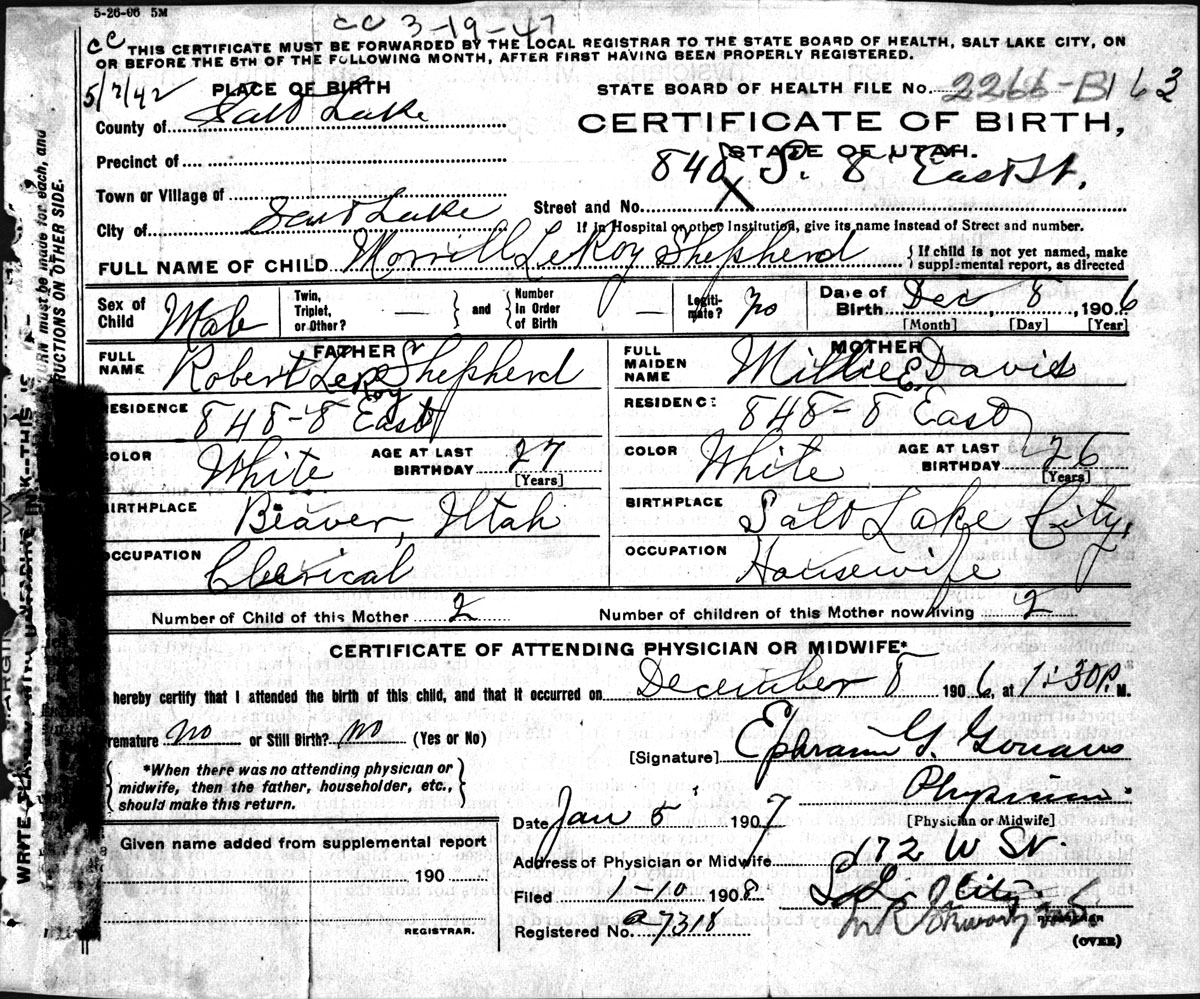 5-26-06 5M
CC 3-19-47
CC THIS CERTIFICATE MUST BE FORWARDED BY THE LOCAL REGISTRAR TO THE STATE BOARD OF HEALTH, SALT LAKE CITY, ON
OR BEFORE THE 5TH OF THE FOLLOWING MONTH, AFTER FIRST HAVING BEEN PROPERLY REGISTERED.
5/7/42 PLACE OF BIRTH
STATE BOARD OF HEALTH FILE No. 2266-B 163
County of Salt Lake
CERTIFICATE OF BIRTH,
STATE OF UTAH.
Precinct of
848 S. 8 East St.
Town or Village of
Street and No.
City of Salt Lake
If in Hospital or other Institution, give its name instead of Street and number.
FULL NAME OF CHILD Morrill LeRoy Shepherd
{ If child is not yet named, make
supplemental report, as directed
Sex of Child Male
Twin, Triplet, or Other? —
} and { Number in Order of Birth —
Legitimate? no
Date of Birth Dec 8, 1906
[Month] [Day] [Year]
FATHER
FULL NAME Robert Leroy Shepherd
RESIDENCE 848-8 East
COLOR White AGE AT LAST BIRTHDAY 27
[Years]
BIRTHPLACE Beaver, Utah
OCCUPATION Clerical
MOTHER
FULL MAIDEN NAME Millie E. Davis
RESIDENCE 848-8 East
COLOR White AGE AT LAST BIRTHDAY 26
[Years]
BIRTHPLACE Salt Lake City,
OCCUPATION Housewife
Number of Child of this Mother 2 Number of children of this Mother now living 2
CERTIFICATE OF ATTENDING PHYSICIAN OR MIDWIFE*
hereby certify that I attended the birth of this child, and that it occurred on December 8 1906, at 1:30 P. M.
remature no or Still Birth? no (Yes or No)
[Signature] Ephraim G. Gowans
*When there was no attending physician or
midwife, then the father, householder, etc.,
should make this return.
Physician
[Physician or Midwife]
Date Jan 5 1907
Address of Physician or Midwife 172 W St.
Given name added from supplemental report
190
REGISTRAR.
Filed 1-10 1908 S. L. City
REGISTRAR
Registered No. a7318
(OVER)
WRITE PLAINLY WITH UNFADING INK—THIS IS
URN must be made for each, and
RUCTIONS ON OTHER SIDE.